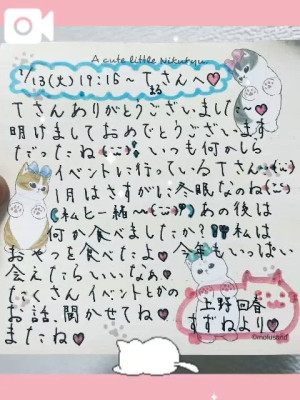 A cute little Nikukyu.
1/13(火)19:15〜Tさんへ♥
まる
Tさんありがとうございました〜♥
明けましておめでとうございます
だったね いつも何かしら
イベントに行っているTさん
1月はさすがに冬眠なのね
(私と一緒〜 )あの後は
何か食べましたか？私は
おやつを食べたよ♥今年もいっぱい
会えたらいいなぁ♥
たくさんイベントとかの
お話、聞かせてね♥
またね♥
上野回春
すずねより♥
©mofusand